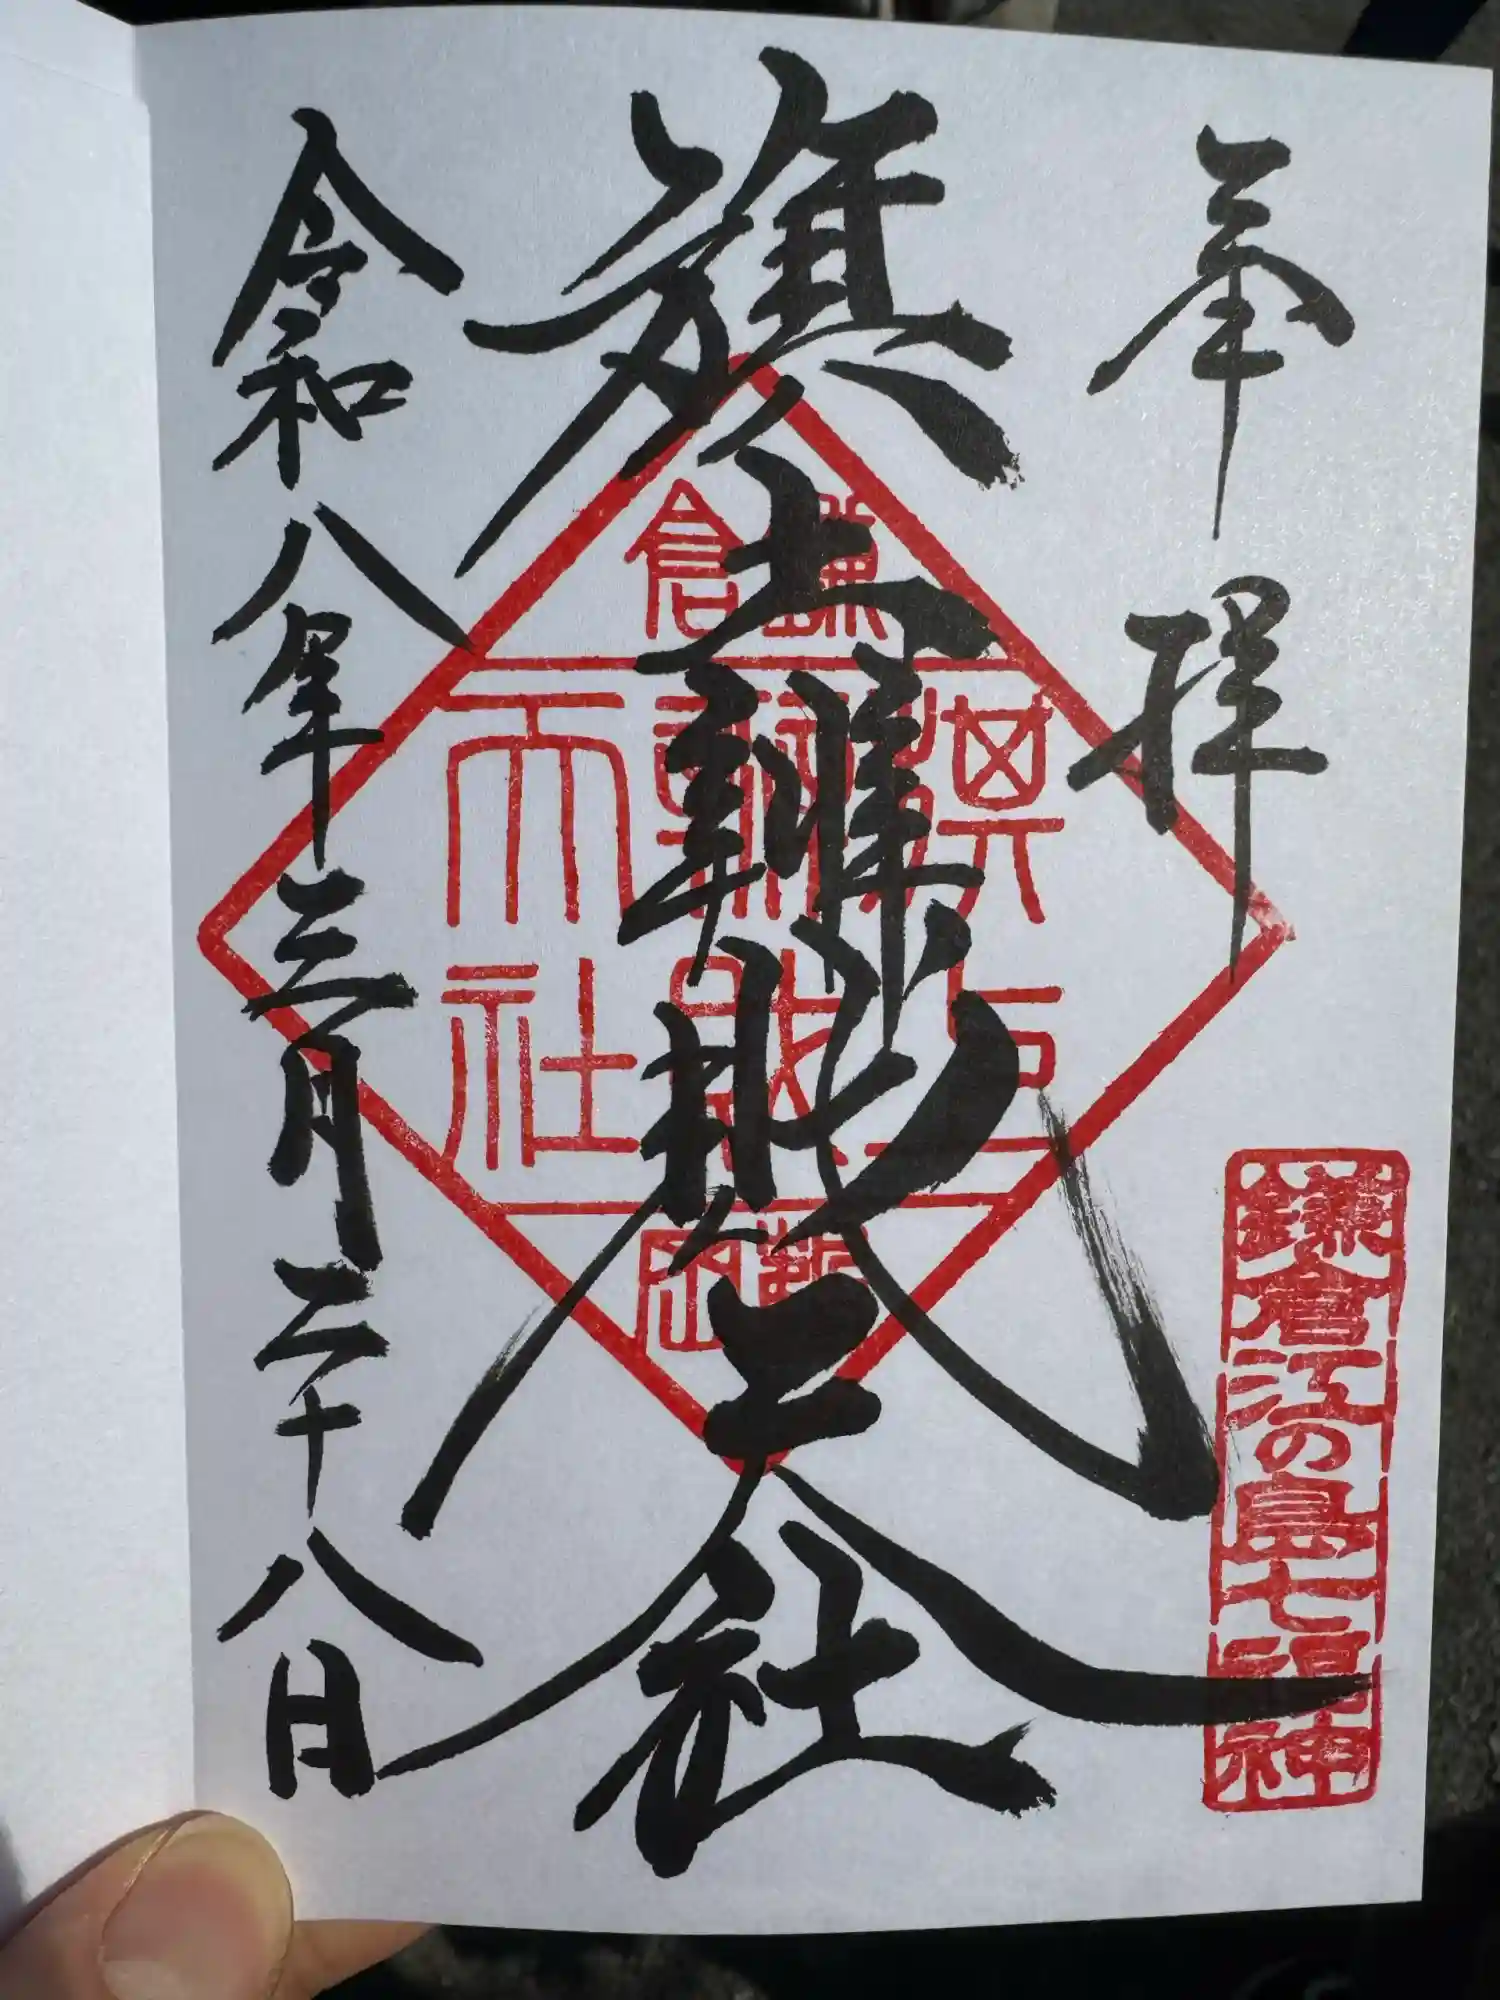 奉拝
鎌倉江の島七福神
旗上辨財天社
鎌倉
源氏
辨財
天社
令和八年三月二十八日